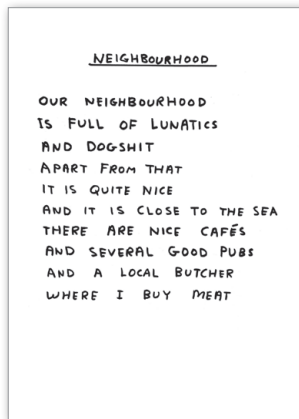 NEIGHBOURHOOD
OUR NEIGHBOURHOOD
IS FULL OF LUNATICS
AND DOGSHIT
APART FROM THAT
IT IS QUITE NICE
AND IT IS CLOSE TO THE SEA
THERE ARE NICE CAFÉS
AND SEVERAL GOOD PUBS
AND A LOCAL BUTCHER
WHERE I BUY MEAT